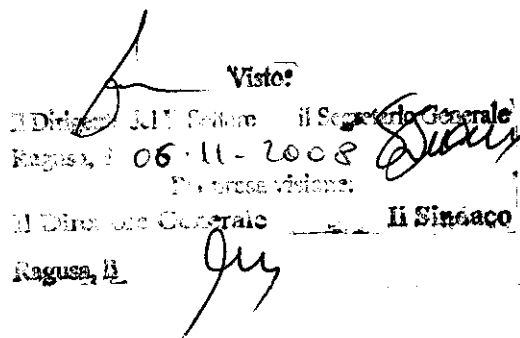 Visto:
Il Dirigente del I° Settore il Segretario Generale
Ragusa, lì 06-11-2008
Per presa visione:
Il Direttore Generale Il Sindaco
Ragusa, lì